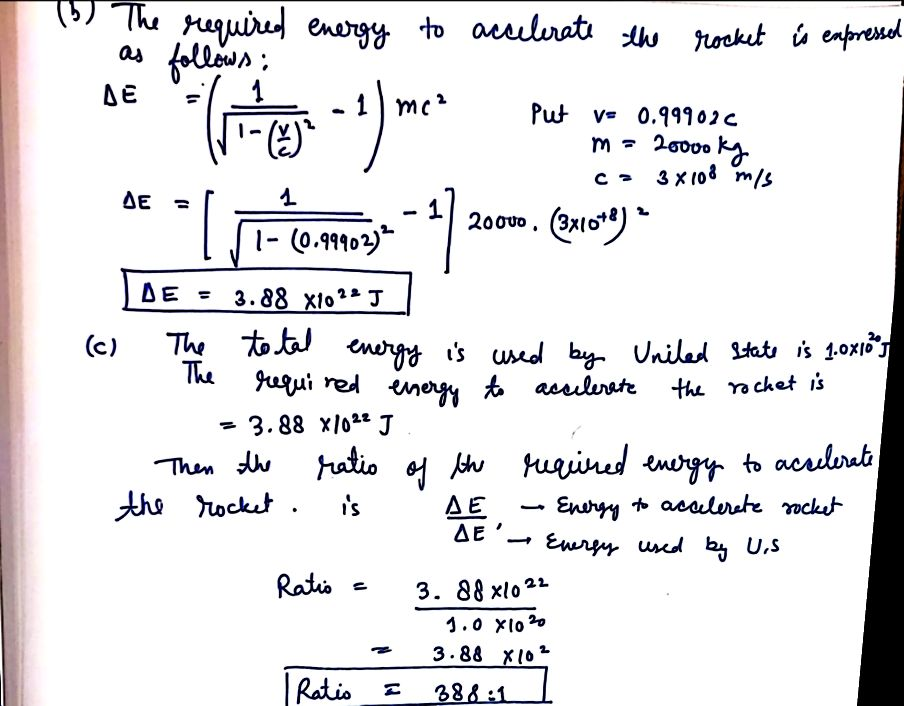 (b) The required energy to accelerate the rocket is expressed
as follows;
ΔE = (1/√(1-(v/c)²) - 1) mc²
Put v = 0.99902c
m = 20000 kg
c = 3×10⁸ m/s
ΔE = [1/√(1-(0.99902)²) - 1] 20000 . (3×10⁺⁸)²
ΔE = 3.88 ×10²² J
(c) The total energy is used by United State is 1.0×10²⁰ J
The required energy to accelerate the rocket is
= 3.88 ×10²² J
Then the ratio of the required energy to accelerate
the rocket . is ΔE → Energy to accelerate rocket
ΔE' → Energy used by U.S
Ratio = 3.88×10²²
1.0 ×10²⁰
= 3.88 ×10²
Ratio = 388:1